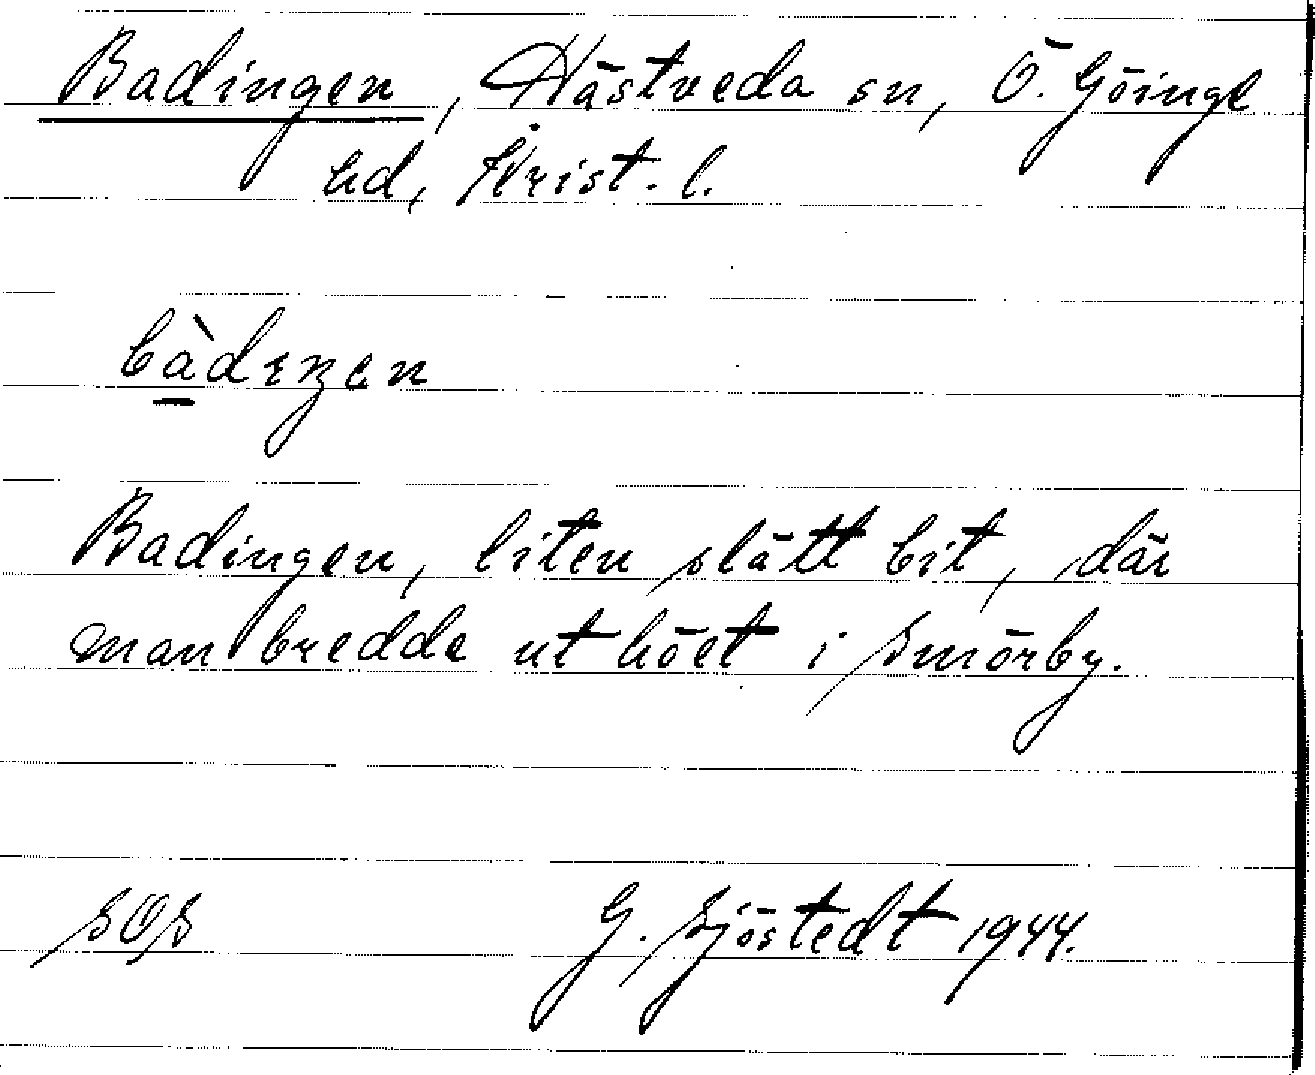 Badingen, Hästveda sn, Ö. Göinge
hd, Krist. l.
bàdıŋen
Badingen, liten slätt bit, där
man bredde ut höet i Smörby.
SOS G. Sjöstedt 1944.